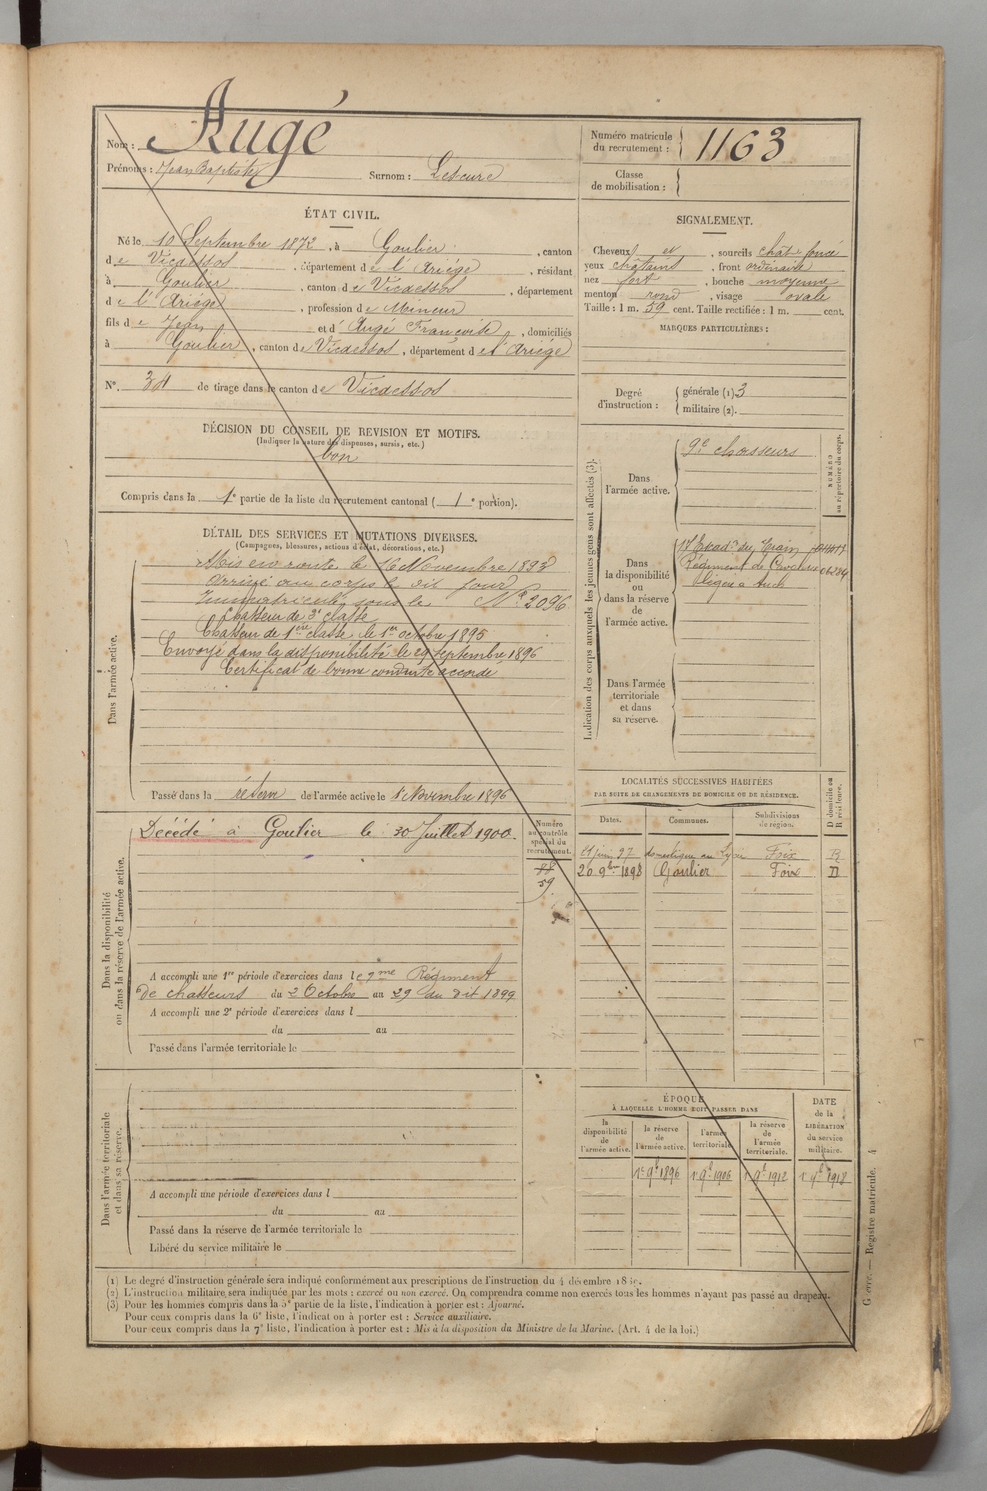 Nom : Augé
Prénoms : Jean Baptiste Surnom : Lescure
Numéro matricule du recrutement : 1163
Classe de mobilisation :
ÉTAT CIVIL.
Né le 10 Septembre 1872, à Goulier, canton
de Vicdessos, département de l'Ariège, résidant
à Goulier, canton de Vicdessos, département
de l'Ariège, profession de Mineur
fils de Jean et d'Augé Françoise, domiciliés
à Goulier, canton de Vicdessos, département de l'Ariège
N°. 34 de tirage dans le canton de Vicdessos
DÉCISION DU CONSEIL DE REVISION ET MOTIFS.
(Indiquer la nature des dispenses, sursis, etc.)
bon
Compris dans la 1e partie de la liste du recrutement cantonal ( 1e portion).
SIGNALEMENT.
Cheveux et, sourcils chât. foncé
yeux châtains, front ordinaire
nez fort, bouche moyenne
menton rond, visage ovale
Taille : 1 m. 59 cent. Taille rectifiée : 1 m. cent.
MARQUES PARTICULIÈRES :
Degré d'instruction : générale (1) 3
militaire (2).
DÉTAIL DES SERVICES ET MUTATIONS DIVERSES.
(Campagnes, blessures, actions d'éclat, décorations, etc.)
Dans l'armée active.
Mis en route le 16 Novembre 1893
arrivé au corps le dit jour
Immatriculé sous le N° 2096
Chasseur de 2e classe
Chasseur de 1ère classe le 1er octobre 1895
Envoyé dans la disponibilité le 29 septembre 1896
Certificat de bonne conduite accordé
Passé dans la réserve de l'armée active le 1 Novembre 1896
Indication des corps auxquels les jeunes gens sont affectés (3).
NUMÉRO au répertoire du corps.
Dans l'armée active.
9e chasseurs
Dans la disponibilité ou dans la réserve de l'armée active.
Régiment de Cavalerie
Dans l'armée territoriale et dans sa réserve.
Dans la disponibilité ou dans la réserve de l'armée active.
Décédé à Goulier le 30 Juillet 1900.
Numéro au contrôle spécial du recrutement.
59
A accompli une 1re période d'exercices dans le 9me Régiment
de chasseurs du 2 Octobre au 29 du dit 1899
A accompli une 2e période d'exercices dans l
du au
Passé dans l'armée territoriale le
LOCALITÉS SUCCESSIVES HABITÉES
PAR SUITE DE CHANGEMENTS DE DOMICILE OU DE RÉSIDENCE.
Dates. Communes. Subdivisions de région. D domicile ou R résidence.
juin 97 domestique au Lycée Foix R
20 9bre 1898 Goulier Foix D
Dans l'armée territoriale et dans sa réserve.
A accompli une période d'exercices dans l
du au
Passé dans la réserve de l'armée territoriale le
Libéré du service militaire le
ÉPOQUE
À LAQUELLE L'HOMME DOIT PASSER DANS
la disponibilité de l'armée active.
la réserve de l'armée active.
l'armée territoriale.
la réserve de l'armée territoriale.
DATE de la LIBÉRATION du service militaire.
1er 9bre 1896 1er 9bre 1906 1er 9bre 1912 1er 9bre 1918
(1) Le degré d'instruction générale sera indiqué conformément aux prescriptions de l'instruction du 4 décembre
(2) L'instruction militaire sera indiquée par les mots : exercé ou non exercé. On comprendra comme non exercés tous les hommes n'ayant pas passé au drapeau.
(3) Pour les hommes compris dans la 5e partie de la liste, l'indication à porter est : Ajourné.
Pour ceux compris dans la 6e liste, l'indication à porter est : Service auxiliaire.
Pour ceux compris dans la 7e liste, l'indication à porter est : Mis à la disposition du Ministre de la Marine. (Art. 4 de la loi.)
Guerre. — Registre matricule. 4